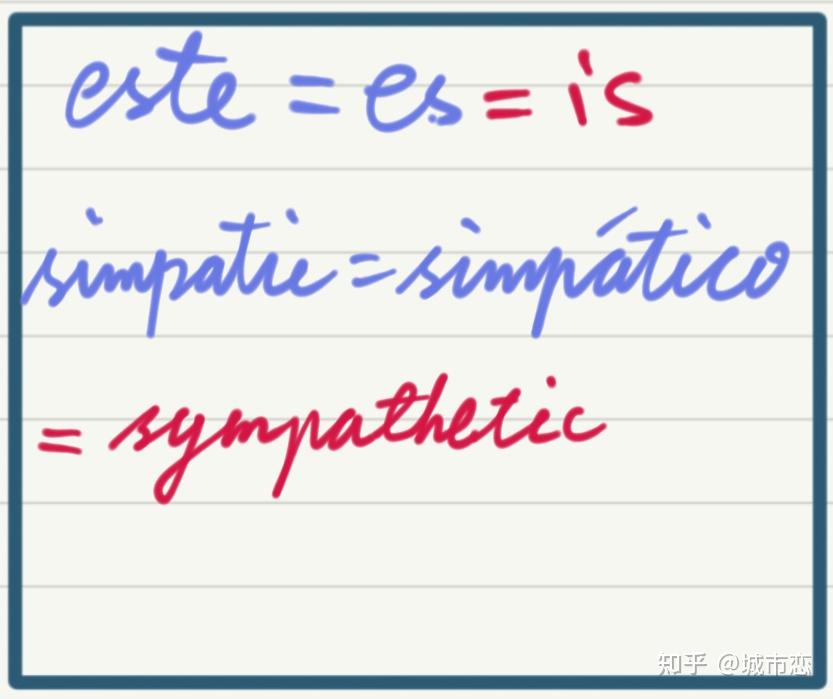 este = es = is
simpatie = simpático
= sympathetic
知乎 @城市恋